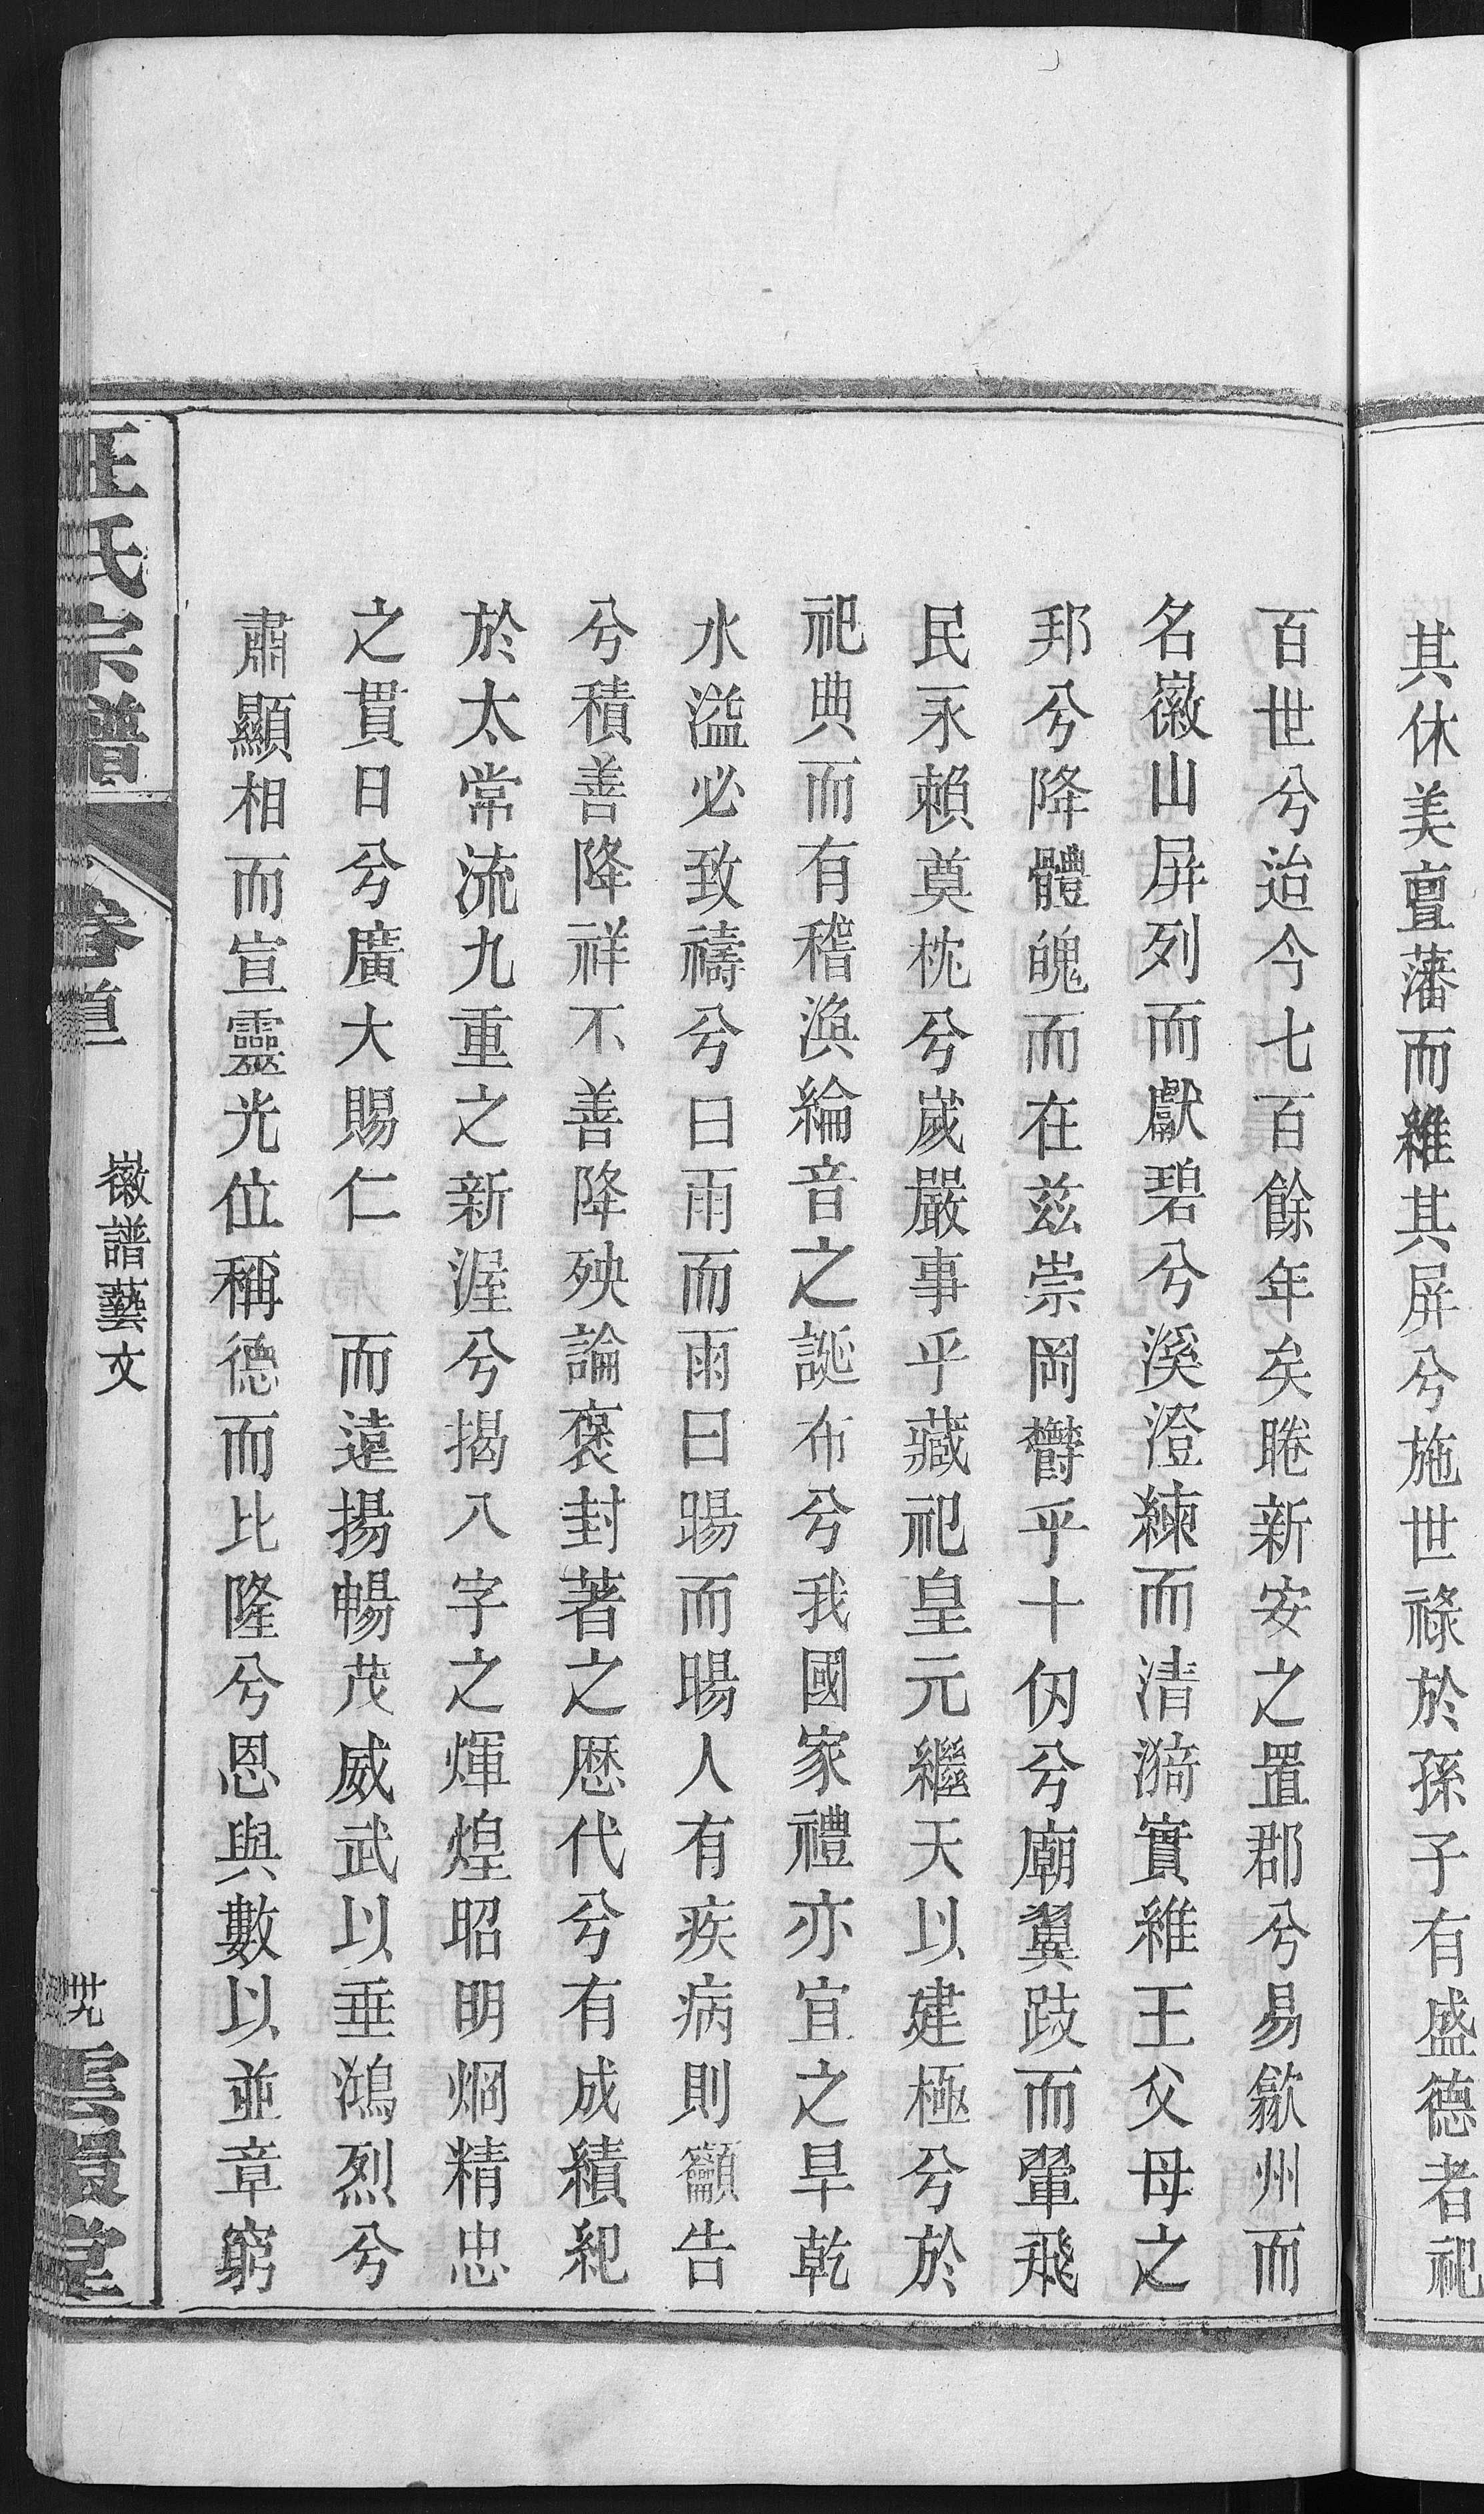 其休美亶藩而維其屏兮施世祿於孫子有盛德者祀
百世兮迨今七百餘年矣睠新安之置郡兮易歙州而
名徽山屏列而獻碧兮溪澄練而清漪實維王父母之
邦兮降體魄而在茲崇岡欝乎十仭兮廟翼跂而翬飛
民永賴奠枕兮嵗嚴事乎藏祀皇元繼天以建極兮於
祀典而有稽渙綸音之誕布兮我國家禮亦宜之旱乾
水溢必致禱兮曰雨而雨曰暘而暘人有疾病則籲告
兮積善降祥不善降殃論褒封著之歷代兮有成績紀
於太常流九重之新渥兮揭八字之煇煌昭明烱精忠
之貫日兮廣大賜仁 而遠揚暢茂威武以垂鴻烈兮
肅顯相而宣靈光位稱德而比隆兮恩與數以並章窮
汪氏宗譜 卷首 徽譜藝文 卅九